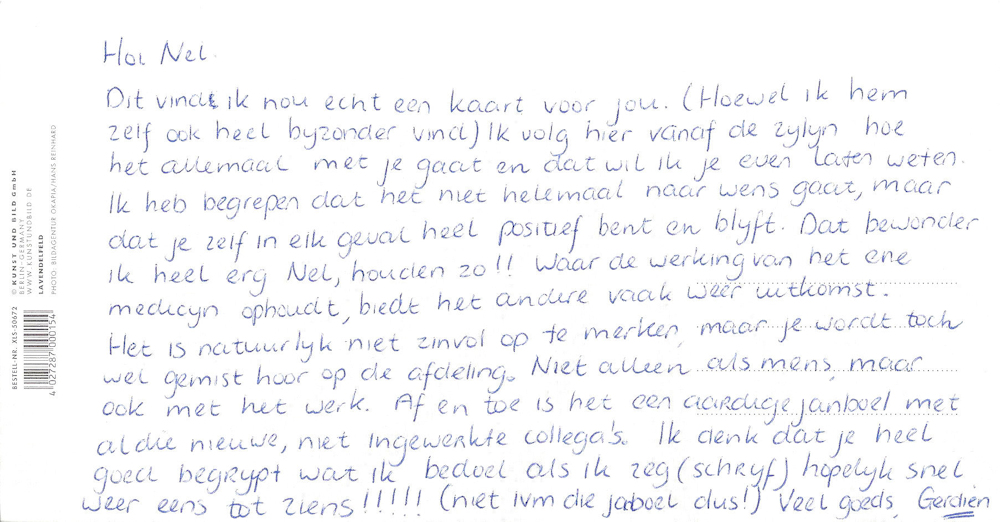 Hoi Nel.
Dit vindt ik nou echt een kaart voor jou. (Hoewel ik hem
zelf ook heel byzonder vind) Ik volg hier vanaf de zylyn hoe
het allemaal met je gaat en dat wil ik je even laten weten.
Ik heb begrepen dat het niet helemaal naar wens gaat, maar
dat je zelf in elk geval heel positief bent en blyft. Dat bewonder
ik heel erg Nel, houden zo!! Waar de werking van het ene
medicyn ophoudt, biedt het andere vaak weer uitkomst.
Het is natuurlyk niet zinvol op te merken, maar je wordt toch
wel gemist hoor op de afdeling. Niet alleen als mens, maar
ook met het werk. Af en toe is het een aardige janboel met
al die nieuwe, niet ingewerkte collega's. Ik denk dat je heel
goed begrypt wat ik bedoel als ik zeg (schryf) hopelyk snel
weer eens tot ziens!!!!! (niet ivm die jaboel dus!) Veel goeds, Gerdien
BESTELL-NR. XLS-50672
4 027287 000154
© KUNST UND BILD GmbH
BERLIN · GERMANY
WWW.KUNSTUNDBILD.DE
LAVENDELFELD
PHOTO: BILDAGENTUR OKAPIA/HANS REINHARD